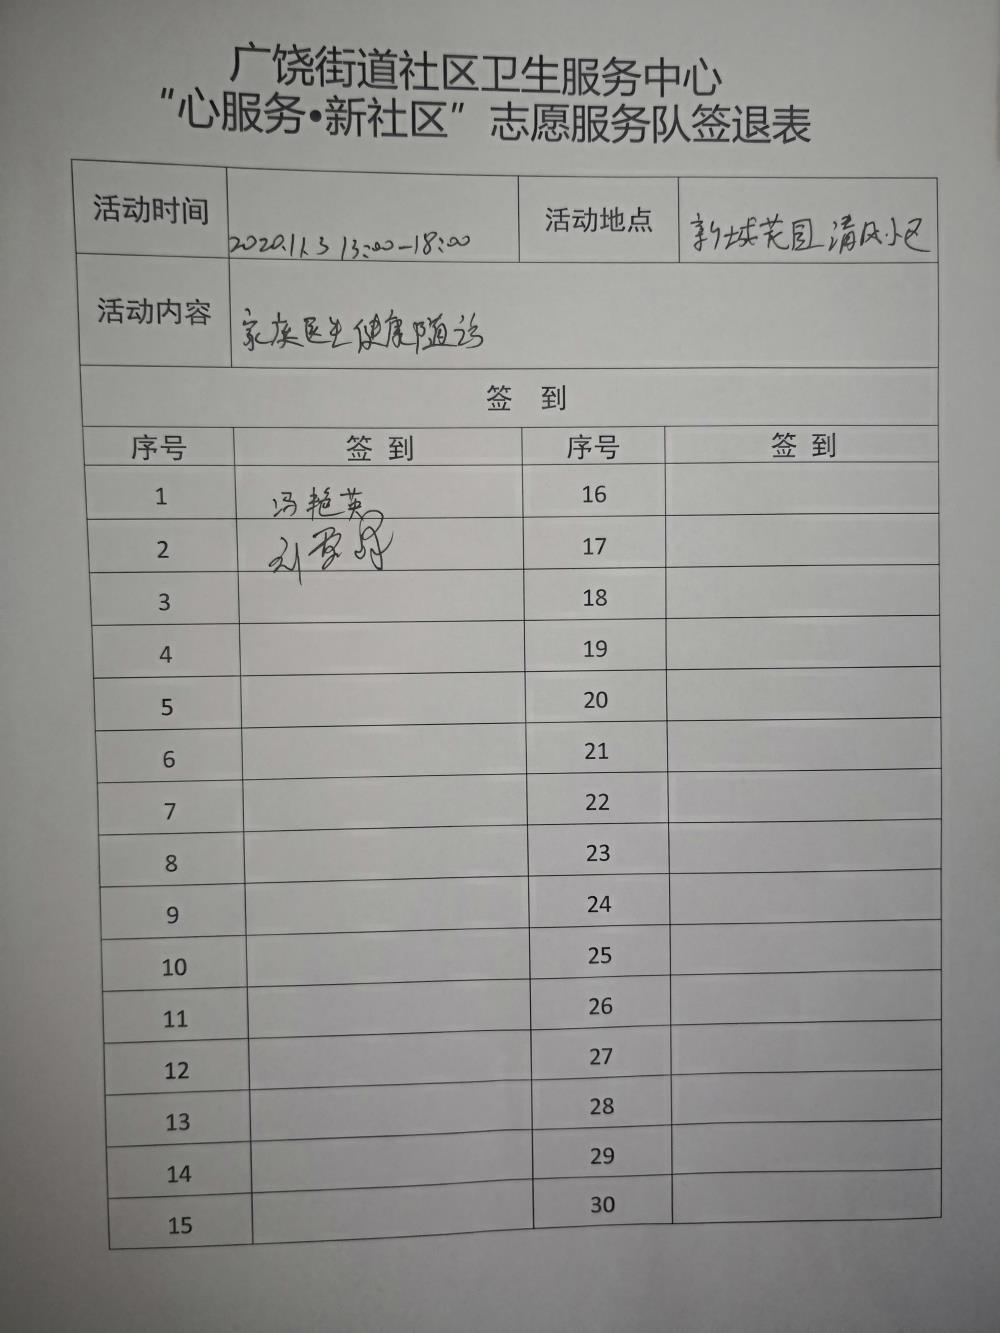 广饶街道社区卫生服务中心
“心服务•新社区”志愿服务队签退表
活动时间 2020.11.3 13:00-18:00 活动地点 新城花园 清风小区
活动内容 家庭医生健康随诊
签 到
序号 签到 序号 签到
1 冯艳英 16
2 刘 17
3 18
4 19
5 20
6 21
7 22
8 23
9 24
10 25
11 26
12 27
13 28
14 29
15 30